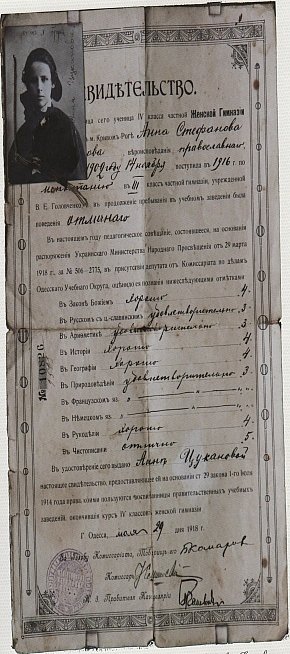 СВИДѢТЕЛЬСТВО.
ца сего ученица IV класса частной Женской Гимназіи
м. Кривомъ-Рогѣ Анна Стефанова
ова вѣроисповѣданія, православнаго,
1902 году 14 ноября, поступила въ 1916 г. по
испытанію въ III классъ частной гимназіи, учрежденной
В. Е. Головченко, въ продолженіе пребыванія въ учебномъ заведеніи была
поведенія отличнаго
Въ настоящемъ году педагогическое совѣщаніе, состоявшееся, на основаніи
распоряженія Украинскаго Министерства Народнаго Просвѣщенія отъ 29 марта
1918 г., за № 506—2775, въ присутствіи депутата отъ Комиссаріата по дѣламъ
Одесскаго Учебнаго Округа, оцѣнило ея познанія нижеслѣдующими отмѣтками
Въ Законѣ Божіемъ хорошо 4.
Въ Русскомъ съ ц.-славянскимъ удовлетворительно 3.
Въ Ариѳметикѣ удовлетворительно 3.
Въ Исторіи хорошо 4.
Въ Географіи хорошо 4.
Въ Природовѣдѣніи удовлетворительно 3.
Въ Французскомъ яз. „ „ „
Въ Нѣмецкомъ яз. „ „ „
Въ Рукодѣліи хорошо 4.
Въ Чистописаніи отлично 5.
Въ удостовѣреніе сего выдано Аннѣ Цукановой
настоящее свидѣтельство, предоставляющее ей на основаніи ст 29 закона 1-го Іюля
1914 года права, коими пользуются воспитанницы правительственныхъ учебныхъ
заведеній, окончившія курсъ IV классовъ женской гимназіи
Г Одесса, мая 29 дня 1918 г.
Комиссаріата, Товарищъ
Комиссаръ
И. д. Правителя Канцеляріи